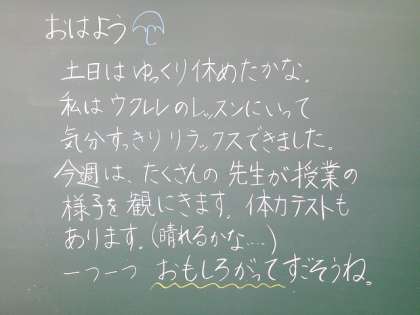 おはよう
土日はゆっくり休めたかな。
私はウクレレのレッスンにいって
気分すっきりリラックスできました。
今週は、たくさんの先生が授業の
様子を観にきます。体力テストも
あります。(晴れるかな…)
一つ一つ おもしろがってすごそうね。